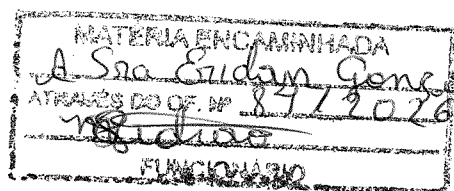 MATERIA ENCAMINHADA
A Sra Eridan Gonç.
ATRAVÉS DO OF. Nº 87/2026
FUNCIONÁRIO